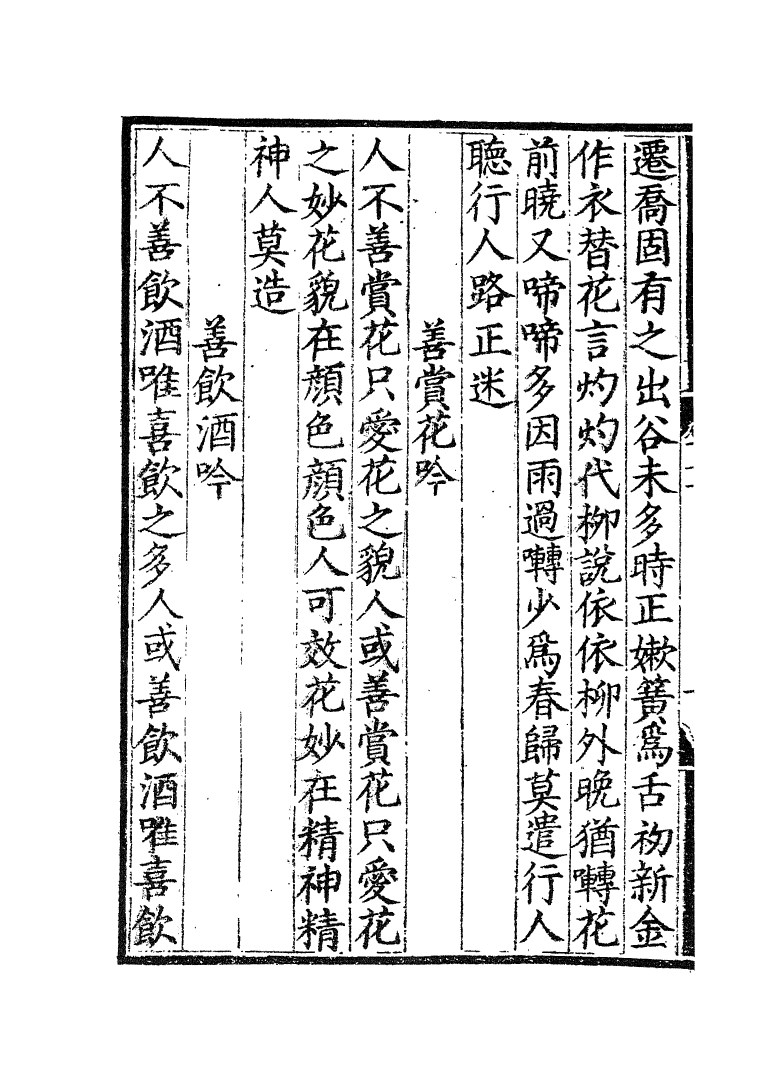 遷喬固有之出谷未多時正嫩簧為舌初新金
作衣替花言灼灼代柳說依依柳外晚猶囀花
前曉又啼啼多因雨過囀少為春歸莫遣行人
聽行人路正迷
善賞花吟
人不善賞花只愛花之貌人或善賞花只愛花
之妙花貌在顔色顔色人可效花妙在精神精
神人莫造
善飲酒吟
人不善飲酒唯喜飲之多人或善飲酒唯喜飲